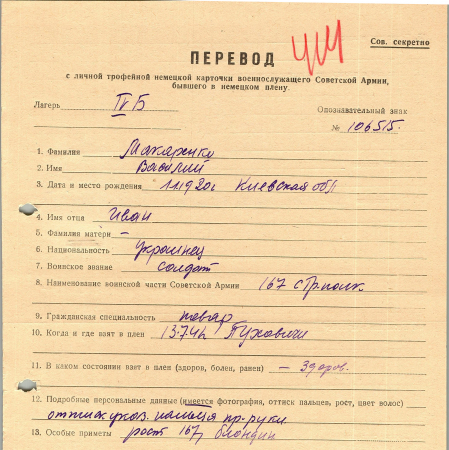 Сов. секретно
ПЕРЕВОД
с личной трофейной немецкой карточки военнослужащего Советской Армии,
бывшего в немецком плену.
Лагерь IV Б
Опознавательный знак
№ 106515.
1. Фамилия Макаренко
2. Имя Василий
3. Дата и место рождения 1.1.1920г Киевская обл
4. Имя отца Иван
5. Фамилия матери –
6. Национальность украинец
7. Воинское звание солдат
8. Наименование воинской части Советской Армии 167 стр. полк
9. Гражданская специальность повар
10. Когда и где взят в плен 13.7.42
11. В каком состоянии взят в плен (здоров, болен, ранен) – здоров.
12. Подробные персональные данные (имеется фотография, оттиск пальцев, рост, цвет волос)
оттиск указ. пальца пр. руки
13. Особые приметы рост 167, блондин